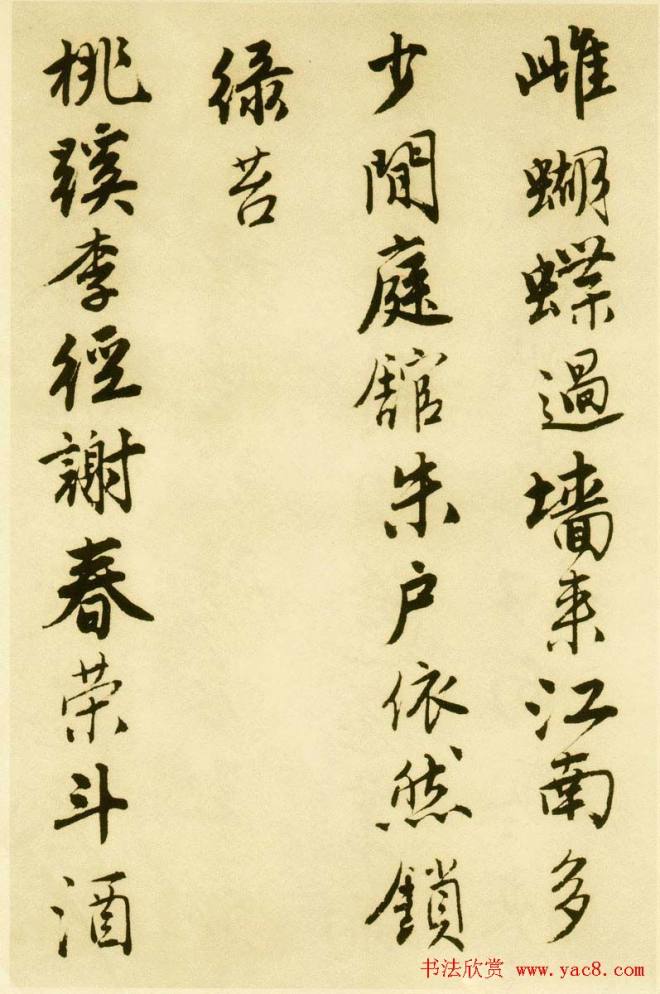 雌蝴蝶過墻来江南多
少閒庭舘朱户依然鎖
緑苔
桃蹊李徑謝春荣斗酒
书法欣赏 www.yac8.com